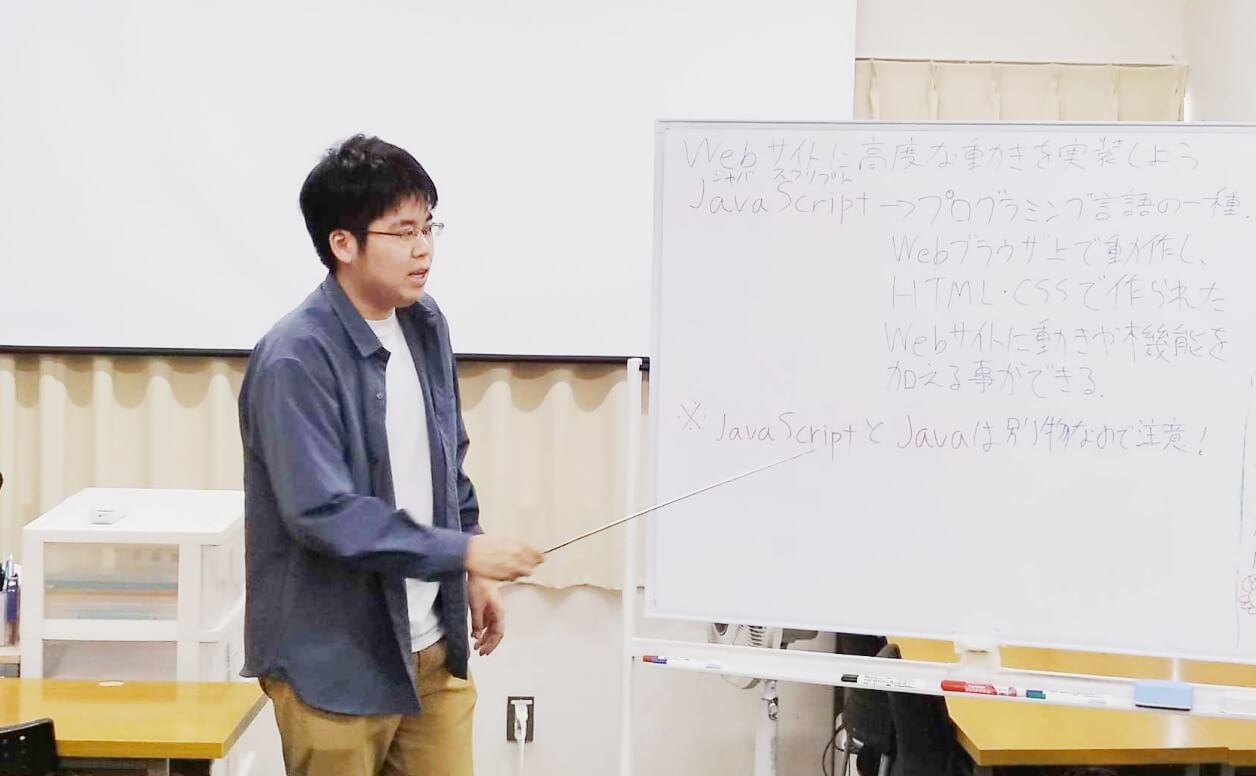 Webサイトに高度な動きを実装しよう
ジャバ スクリプト
JavaScript→プログラミング言語の一種.
Webブラウザ上で動作し、
HTML・CSSで作られた
Webサイトに動きや機能を
加える事ができる.
※JavaScriptとJavaは別物なので注意!